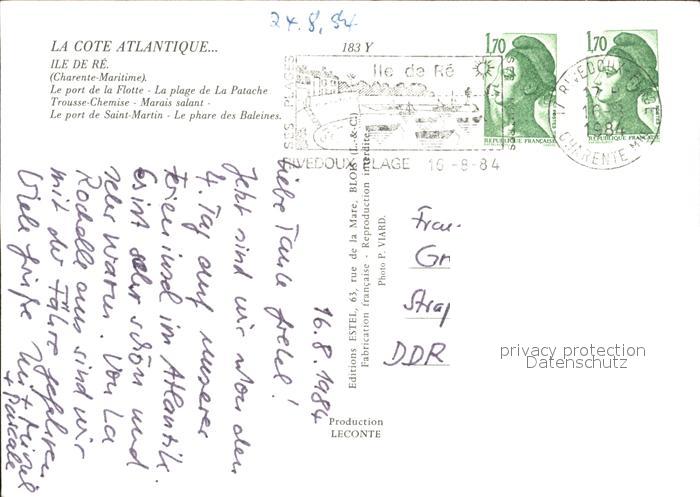 24.8.84
LA COTE ATLANTIQUE...
183 Y
ILE DE RÉ.
(Charente-Maritime).
Le port de la Flotte - La plage de La Patache
Trousse-Chemise - Marais salant -
Le port de Saint-Martin - Le phare des Baleines.
1,70
1,70
REPUBLIQUE FRANÇAISE
Ile de Ré
SES PLAGES
RIVEDOUX PLAGE 16-8-84
1984
CHARENTE
16.8.1984
Liebe Tante
Jetzt sind wir schon den
4. Tag auf unserer
Ferieninsel im Atlantik.
es ist sehr schön und
sehr warm. Von La
Rochelle aus sind wir
mit der Fähre gefahren
Viele Grüße
+ Pascale
Editions ESTEL, 63, rue de la Mare, BLOIS (L.-&-C.)
Fabrication française - Reproduction interdite
Photo P. VIARD.
Frau
Gr
Straß
DDR
Production
LECONTE
privacy protection
Datenschutz